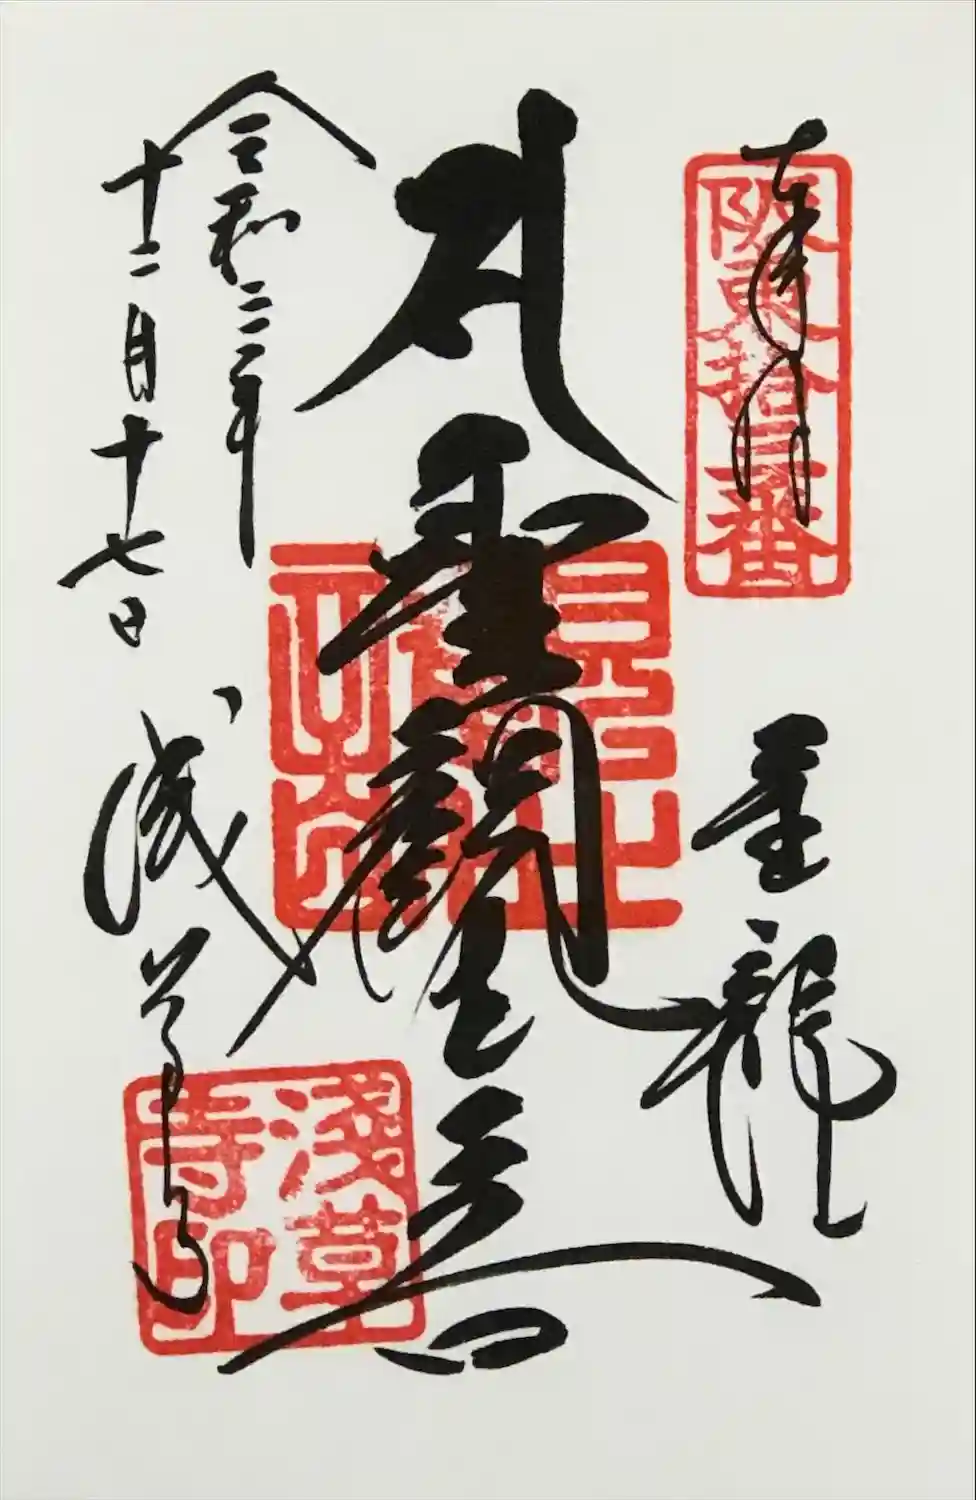 奉拝
阪東拾三番
金龍
聖觀世音
令和二年
十二月十七日
浅草寺
淺草寺印